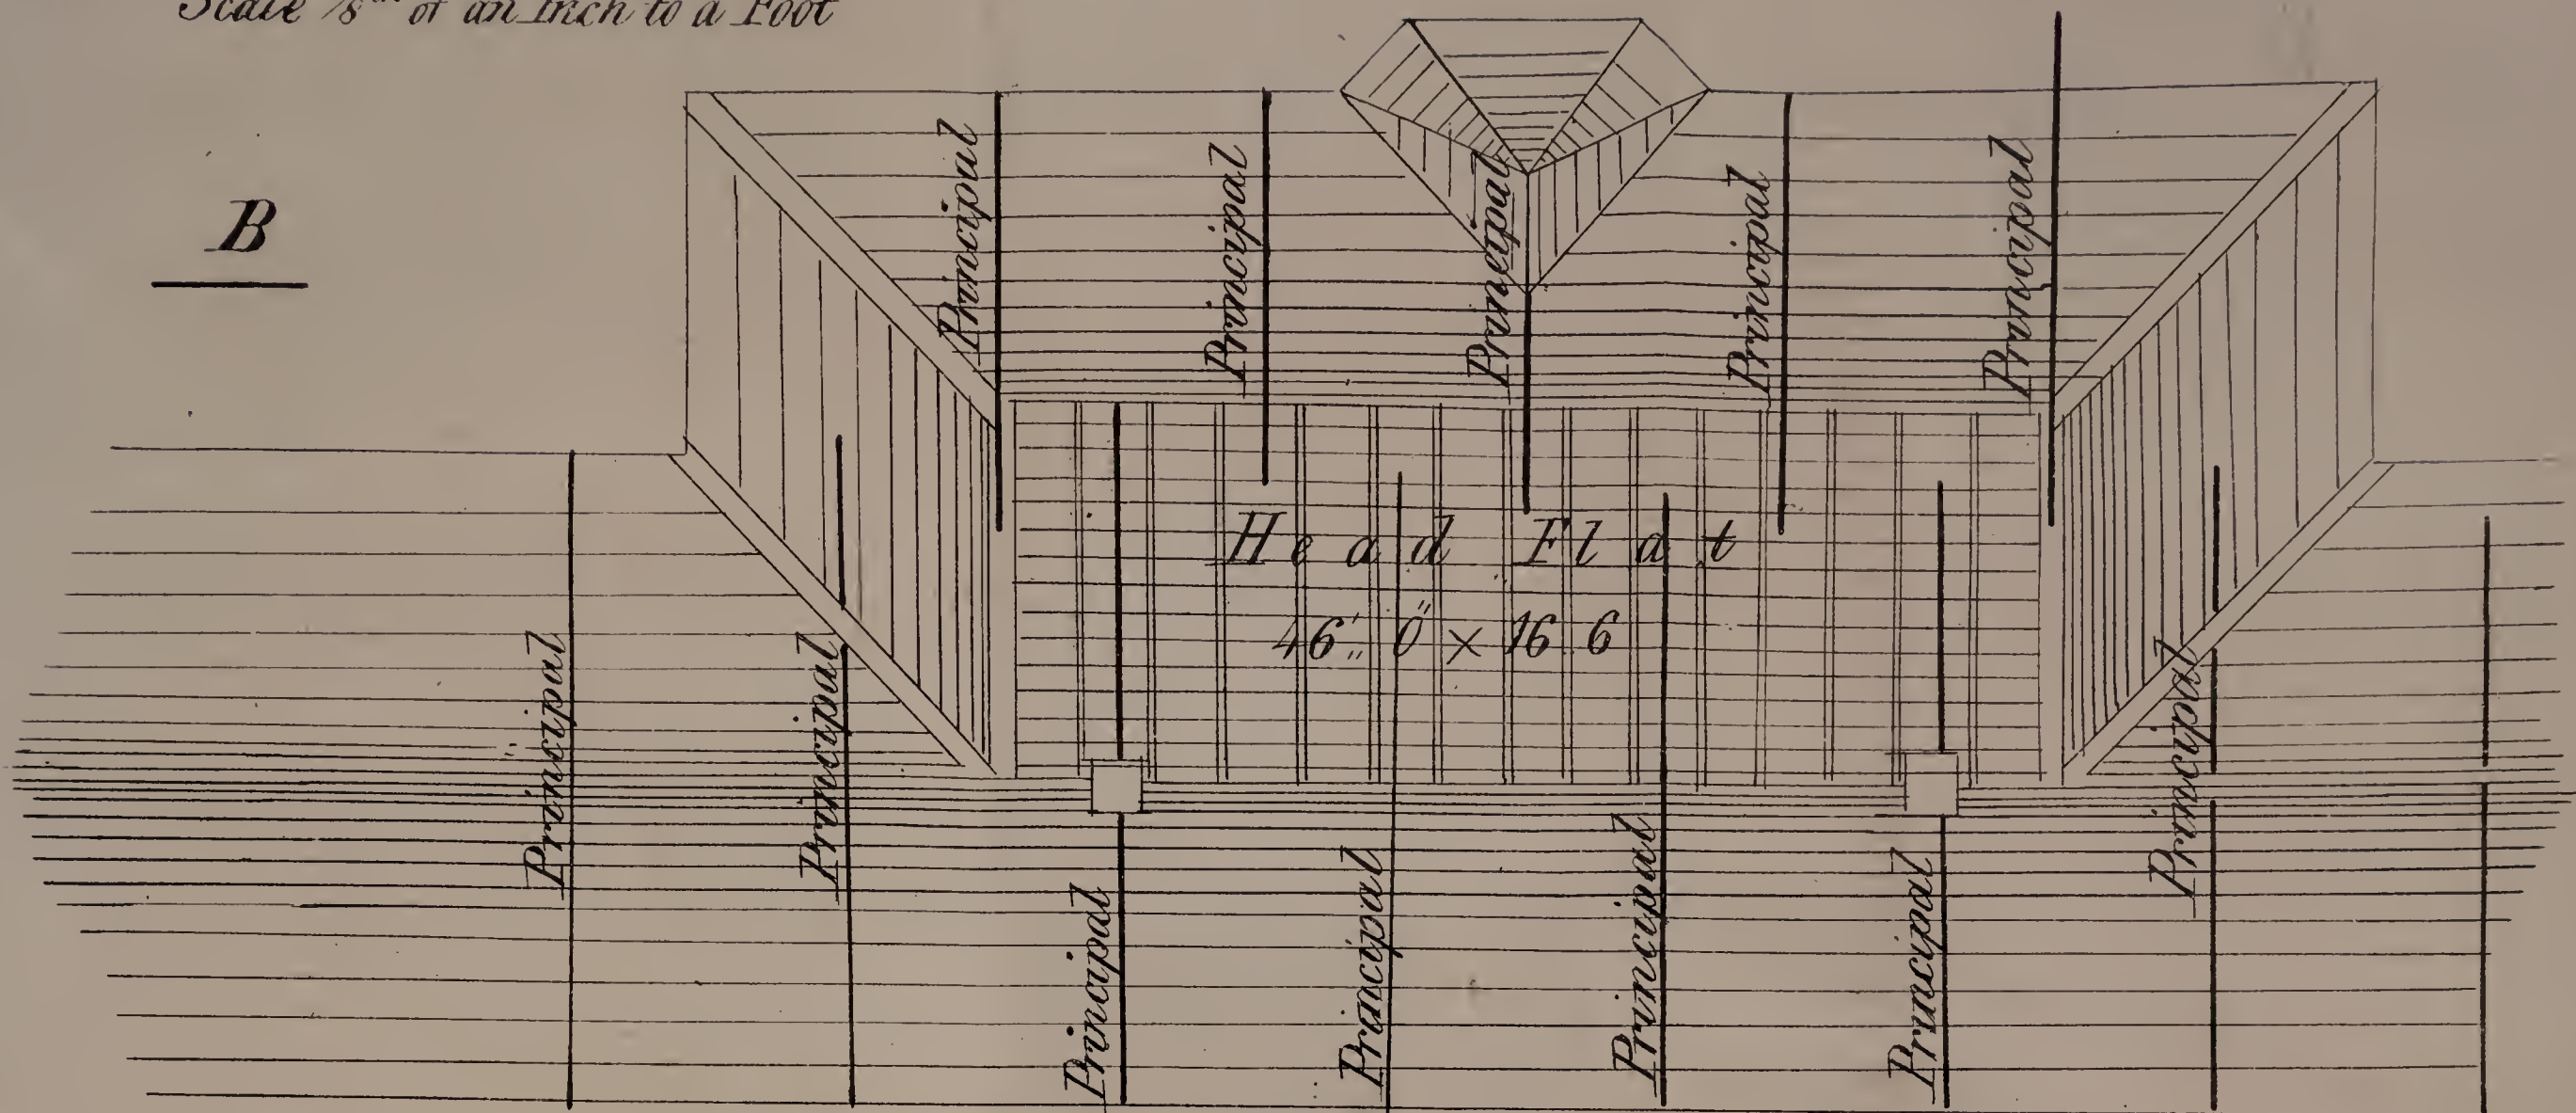 Scale 1/8th of an Inch to a Foot
B
Principal
Principal
Principal
Principal
Principal
Head Flat
46' 0" × 16 6
Principal
Principal
Principal
Principal
Principal
Principal
Principal